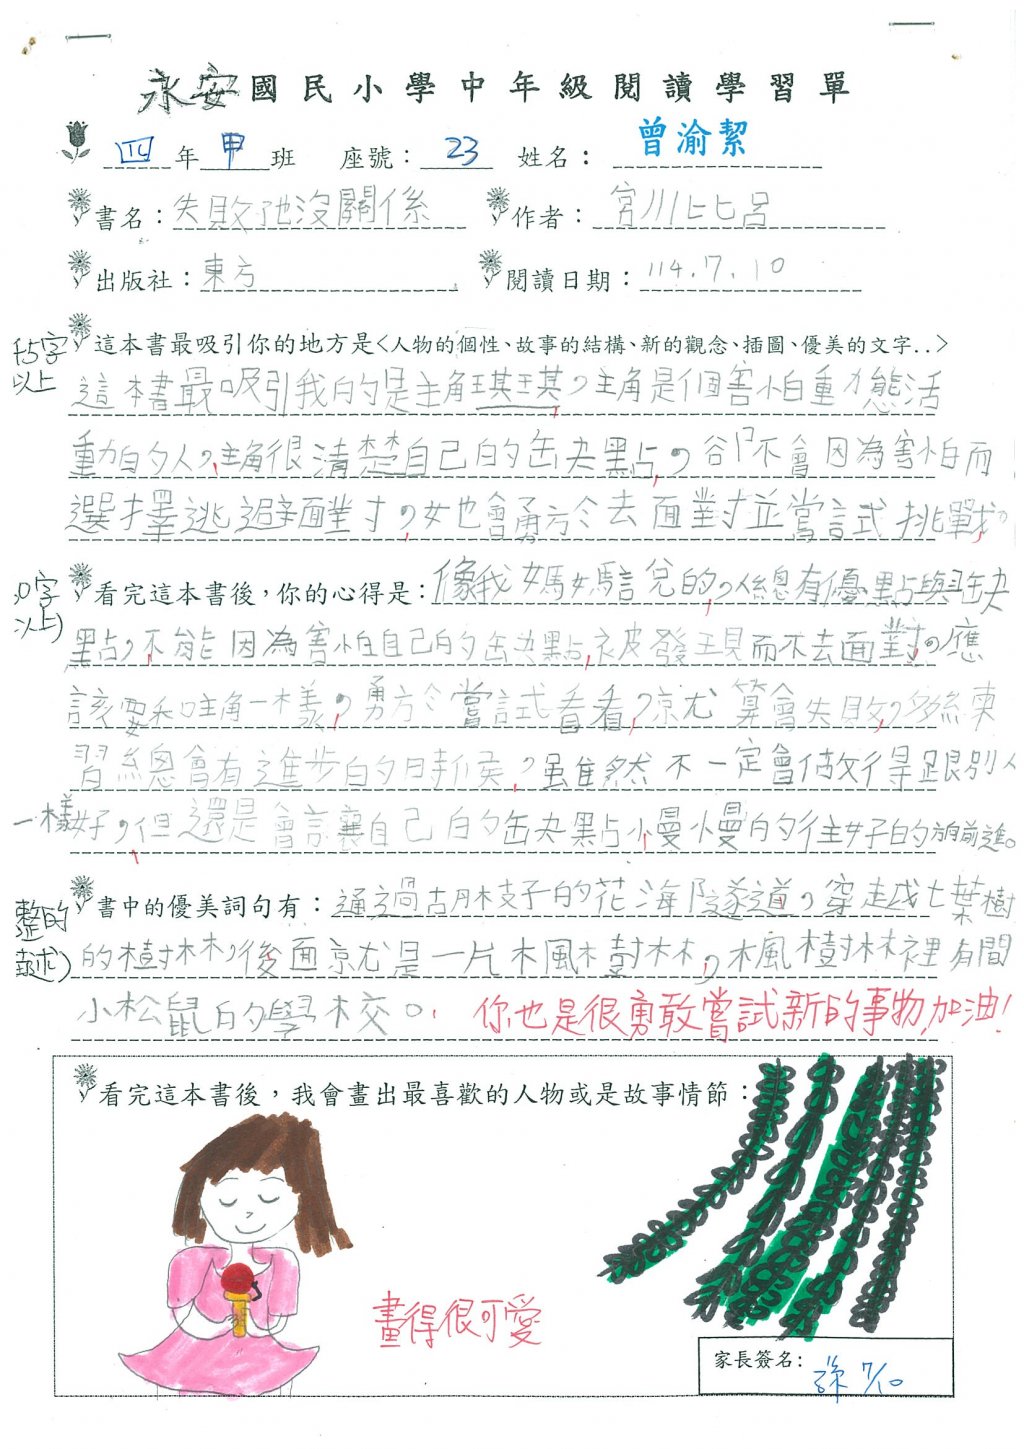 永安國民小學中年級閱讀學習單
四年甲班 座號：23 姓名：曾渝絜
書名：失敗了也沒關係 作者：宮川比呂
出版社：東方 閱讀日期：114.7.10
字以上
這本書最吸引你的地方是<人物的個性、故事的結構、新的觀念、插圖、優美的文字..>
這本書最吸引我的是主角琪琪，主角是個害怕動態活
動的人，主角很清楚自己的缺點，卻不會因為害怕而
選擇逃避面對，她會勇於去面對並嘗試挑戰。
字以上)
看完這本書後，你的心得是：像我媽媽說的，人總有優點與缺
點，不能因為害怕自己的缺點被發現而不去面對。應
該要和主角一樣，勇於嘗試看看，就算會失敗，多練
習總會有進步的時候，雖然不一定會做得跟別人
一樣好，但還是會讓自己的缺點慢慢的往好的方向前進。
書中的優美詞句有：通過胡枝子的花海隧道，穿越七葉樹
的樹林，後面就是一片楓樹林，楓樹林裡有間
小松鼠的學校。你也是很勇敢嘗試新的事物,加油!
看完這本書後，我會畫出最喜歡的人物或是故事情節：
畫得很可愛
家長簽名： 7/10